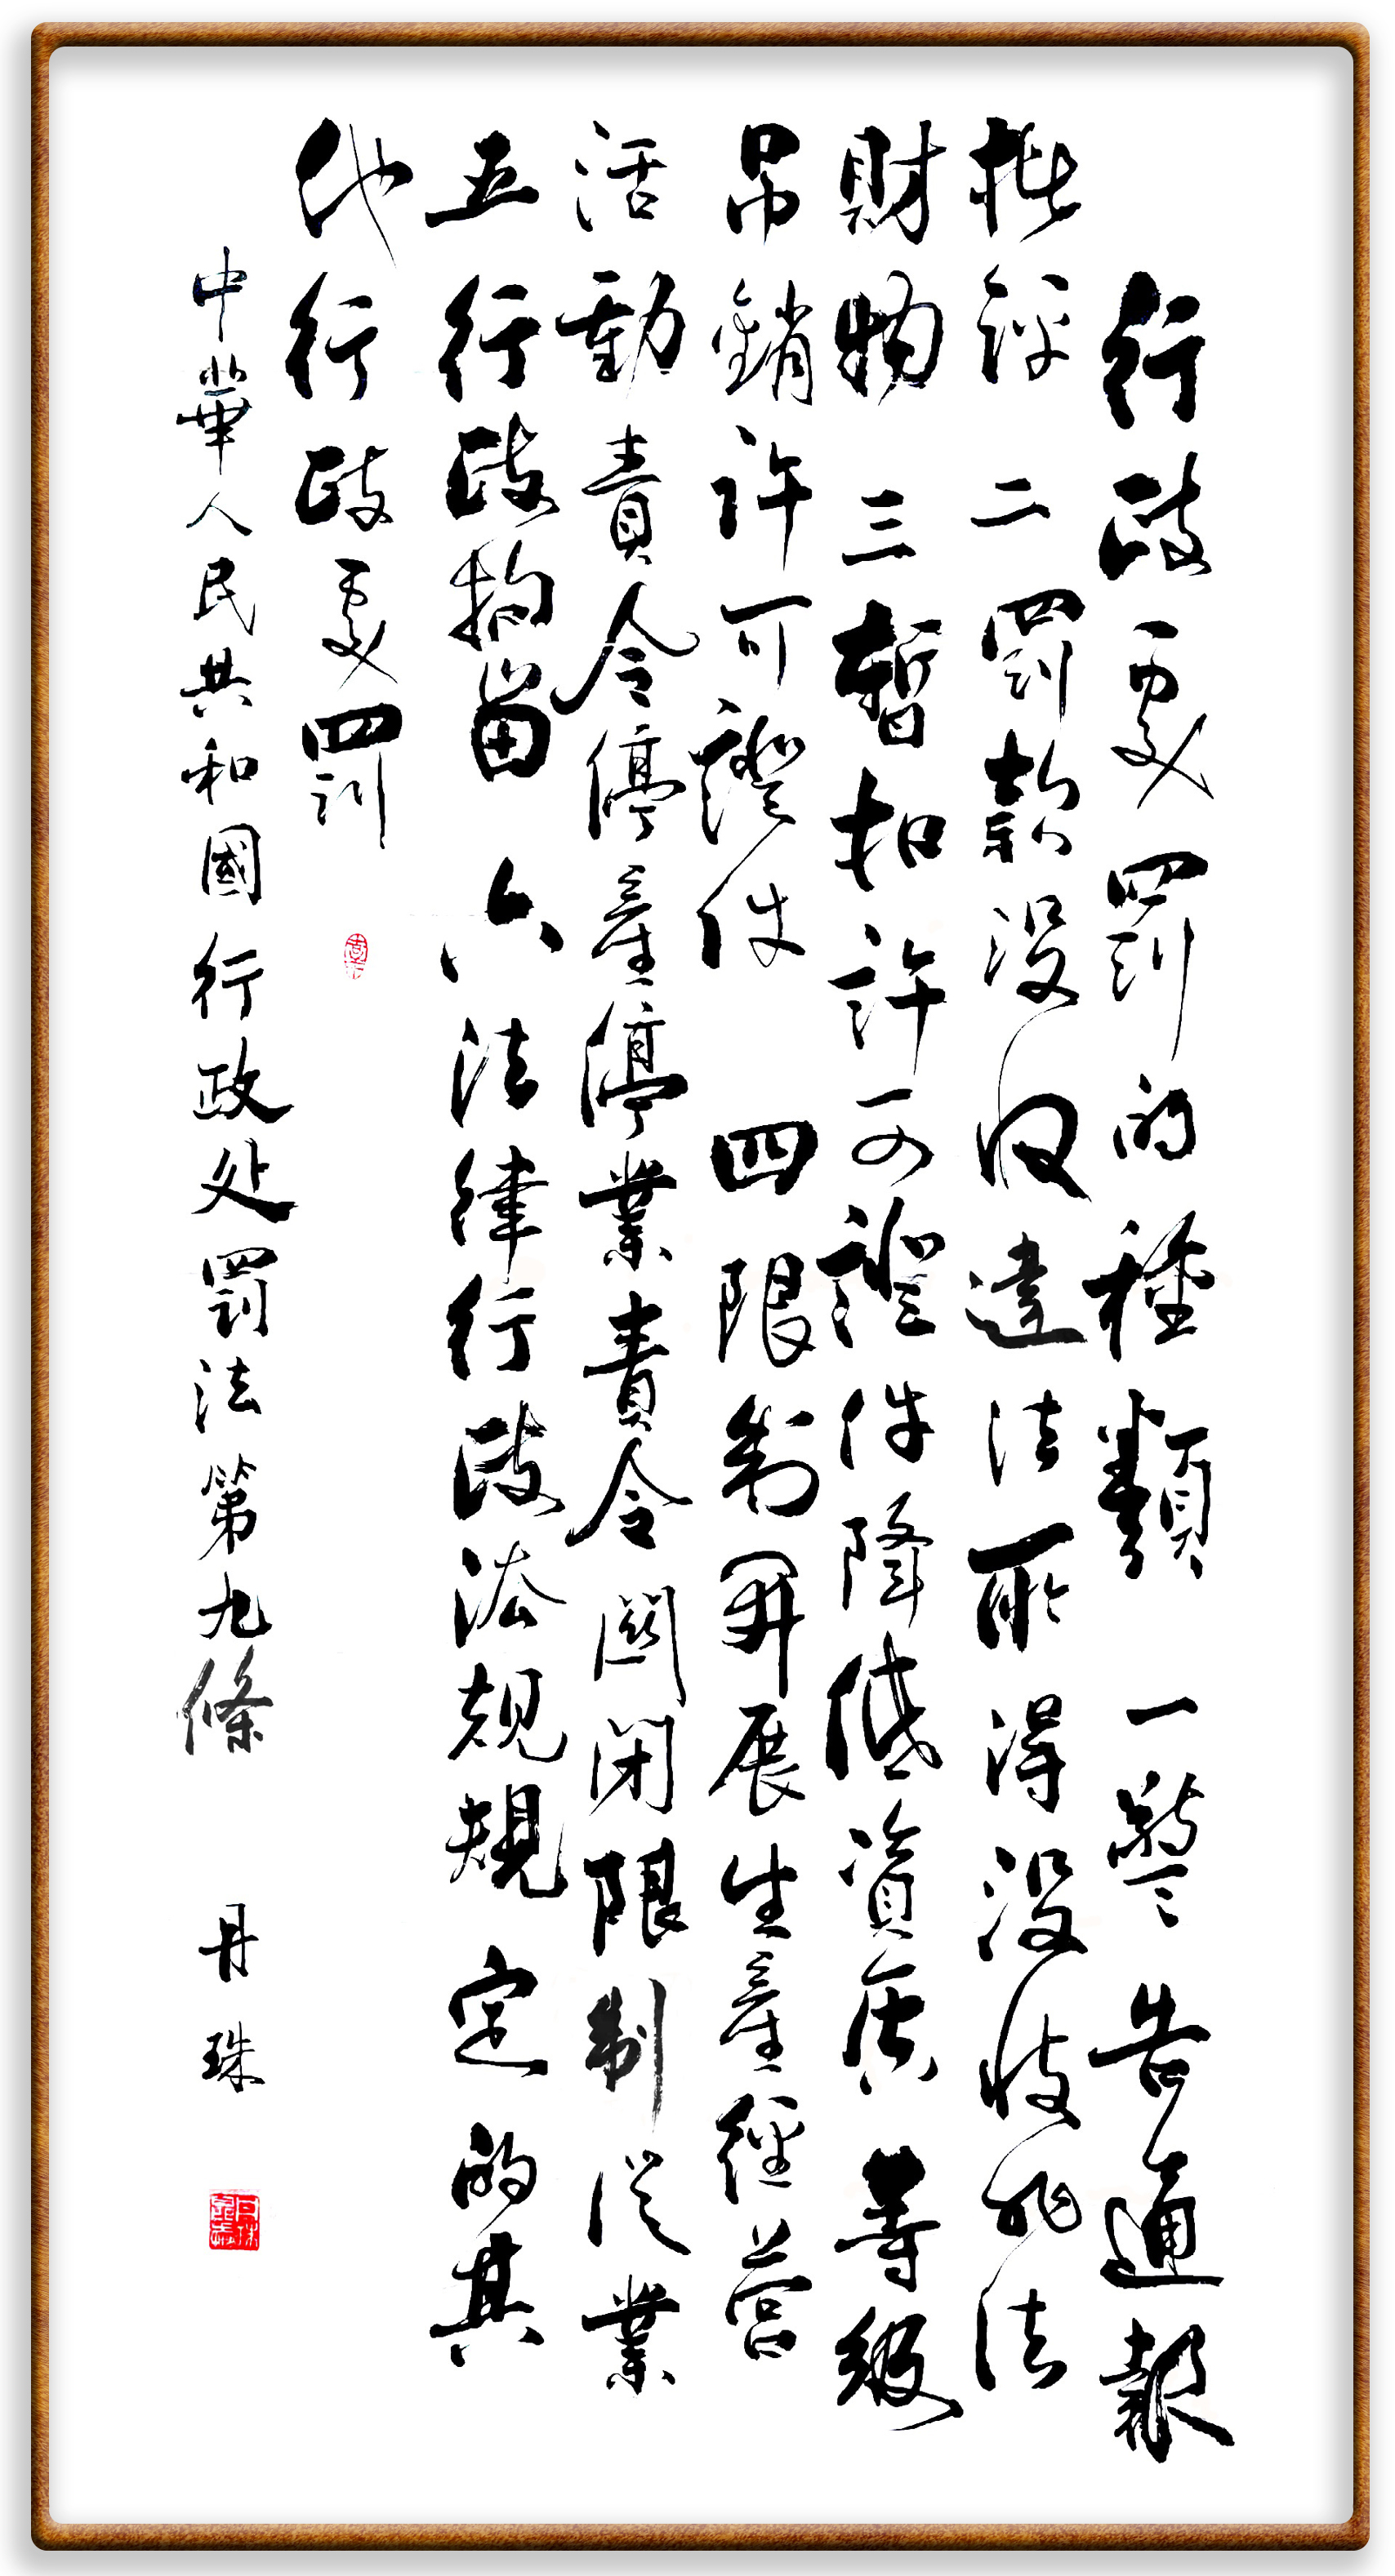 行政處罰的種類 一警告通報
批評 二罰款没收違法所得没收非法
財物 三暫扣許可證件降低資質等級
吊銷許可證件 四限制開展生產經營
活動責令停產停業責令關閉限制從業
五行政拘留 六法律行政法規規定的其
他行政處罰
中華人民共和國行政处罰法第九條 丹珠